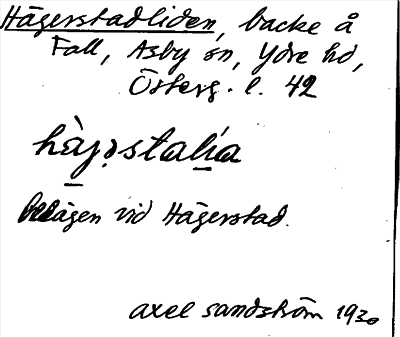 Hägerstadliden, backe å
Fall, Asby sn, Ydre hd,
Österg. l. 42
hàjərstalía
belägen vid Hägerstad.
axel sandström 1930